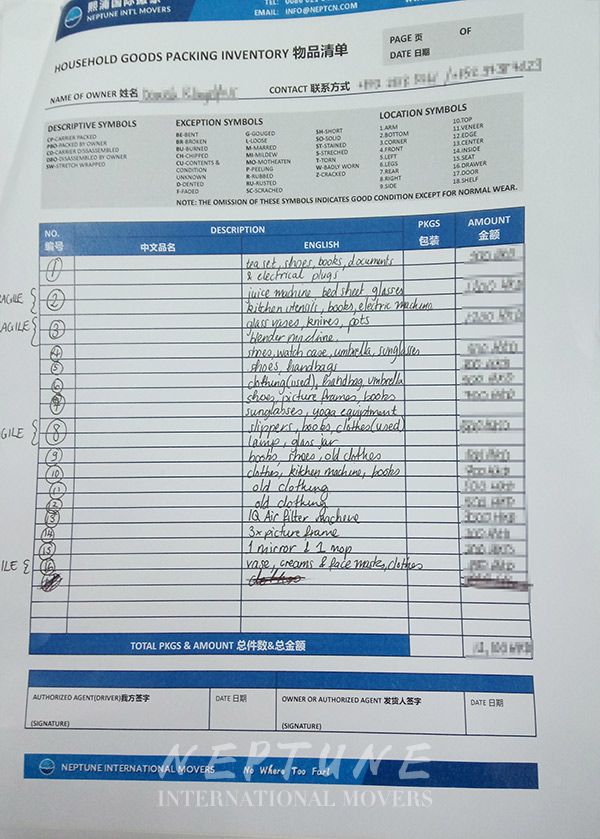 熙浦国际搬家
NEPTUNE INT'L MOVERS
EMAIL: INFO@NEPTCN.COM
HOUSEHOLD GOODS PACKING INVENTORY 物品清单
PAGE 页 OF
DATE 日期
NAME OF OWNER 姓名
CONTACT 联系方式
DESCRIPTIVE SYMBOLS
CP-CARRIER PACKED
PBO-PACKED BY OWNER
CD-CARRIER DISASSEMBLED
DBO-DISASSEMBLED BY OWNER
SW-STRETCH WRAPPED
EXCEPTION SYMBOLS
BE-BENT
BR-BROKEN
BU-BURNED
CH-CHIPPED
CU-CONTENTS &
CONDITION
UNKNOWN
D-DENTED
F-FADED
G-GOUGED
L-LOOSE
M-MARRED
MI-MILDEW
MO-MOTHEATEN
P-PEELING
R-RUBBED
RU-RUSTED
SC-SCRACHED
SH-SHORT
SO-SOLID
ST-STAINED
S-STRECHED
T-TORN
W-BADLY WORN
Z-CRACKED
LOCATION SYMBOLS
1.ARM
2.BOTTOM
3.CORNER
4.FRONT
5.LEFT
6.LEGS
7.REAR
8.RIGHT
9.SIDE
10.TOP
11.VENEER
12.EDGE
13.CENTER
14.INSIDE
15.SEAT
16.DRAWER
17.DOOR
18.SHELF
NOTE: THE OMISSION OF THESE SYMBOLS INDICATES GOOD CONDITION EXCEPT FOR NORMAL WEAR.
NO. 编号
DESCRIPTION
中文品名
ENGLISH
PKGS 包装
AMOUNT 金额
1 tea set, shoes, books, documents
& electrical plugs
AGILE 2 juice machine bed sheet glasses
kitchen utensils, books, electric machines
AGILE 3 glass vases, knives, pots
blender machine.
4 shoes, watch case, umbrella, sunglasses
5 shoes, handbags
6 clothing (used), handbag umbrella
7 shoes, picture frames, books
sunglasses, yoga equiptment
GILE 8 slippers, books, clothes (used)
lamp, glass jar
9 books, shoes, old clothes
10 clothes, kitchen machine, books
11 old clothing
12 old clothing
13 IQ Air filter machine
14 3x picture frame
15 1 mirror & 1 mop
ILE 16 vase, creams & face masks, clothes
TOTAL PKGS & AMOUNT 总件数&总金额
AUTHORIZED AGENT(DRIVER)我方签字
(SIGNATURE)
DATE 日期
OWNER OR AUTHORIZED AGENT 发货人签字
(SIGNATURE)
DATE 日期
NEPTUNE INTERNATIONAL MOVERS No Where Too Far!
NEPTUNE
INTERNATIONAL MOVERS